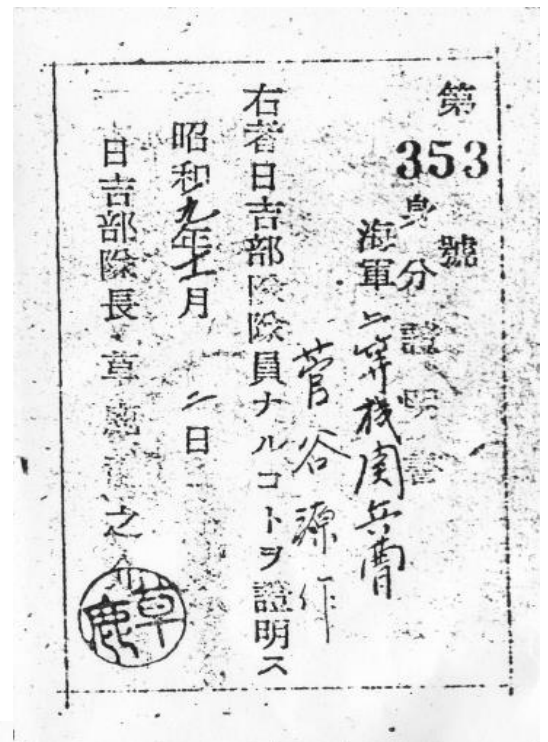 第353號
身分證明書
海軍二等機関兵曹
菅谷源作
右者日吉部隊隊員ナルコトヲ證明ス
昭和九年十一月 二日
日吉部隊長 草鹿 之介
草鹿